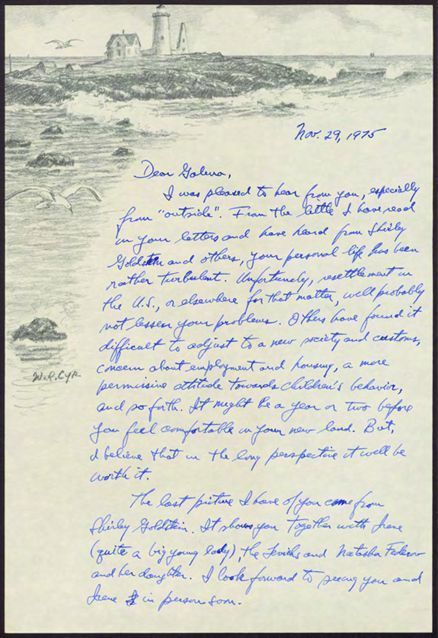 Nov. 29, 1975
Dear Galina,
I was pleased to hear from you, especially
from "outside". From the little I have read
in your letters and have heard from Shirley
Goldstein and others, your personal life has been
rather turbulent. Unfortunately, resettlement in
the U.S., or elsewhere for that matter, will probably
not lessen your problems. Others have found it
difficult to adjust to a new society and customs,
concern about employment and housing, a more
permissive attitude towards children's behavior,
and so forth. It might be a year or two before
you feel comfortable in your new land. But,
I believe that in the long perspective it will be
worth it.
The last picture I have of you came from
Shirley Goldstein. It shows you together with Irene
(quite a big young lady) the Levichs and Natasha
and her daughter. I look forward to seeing you and
Irene in person soon.
W.R. Cyr